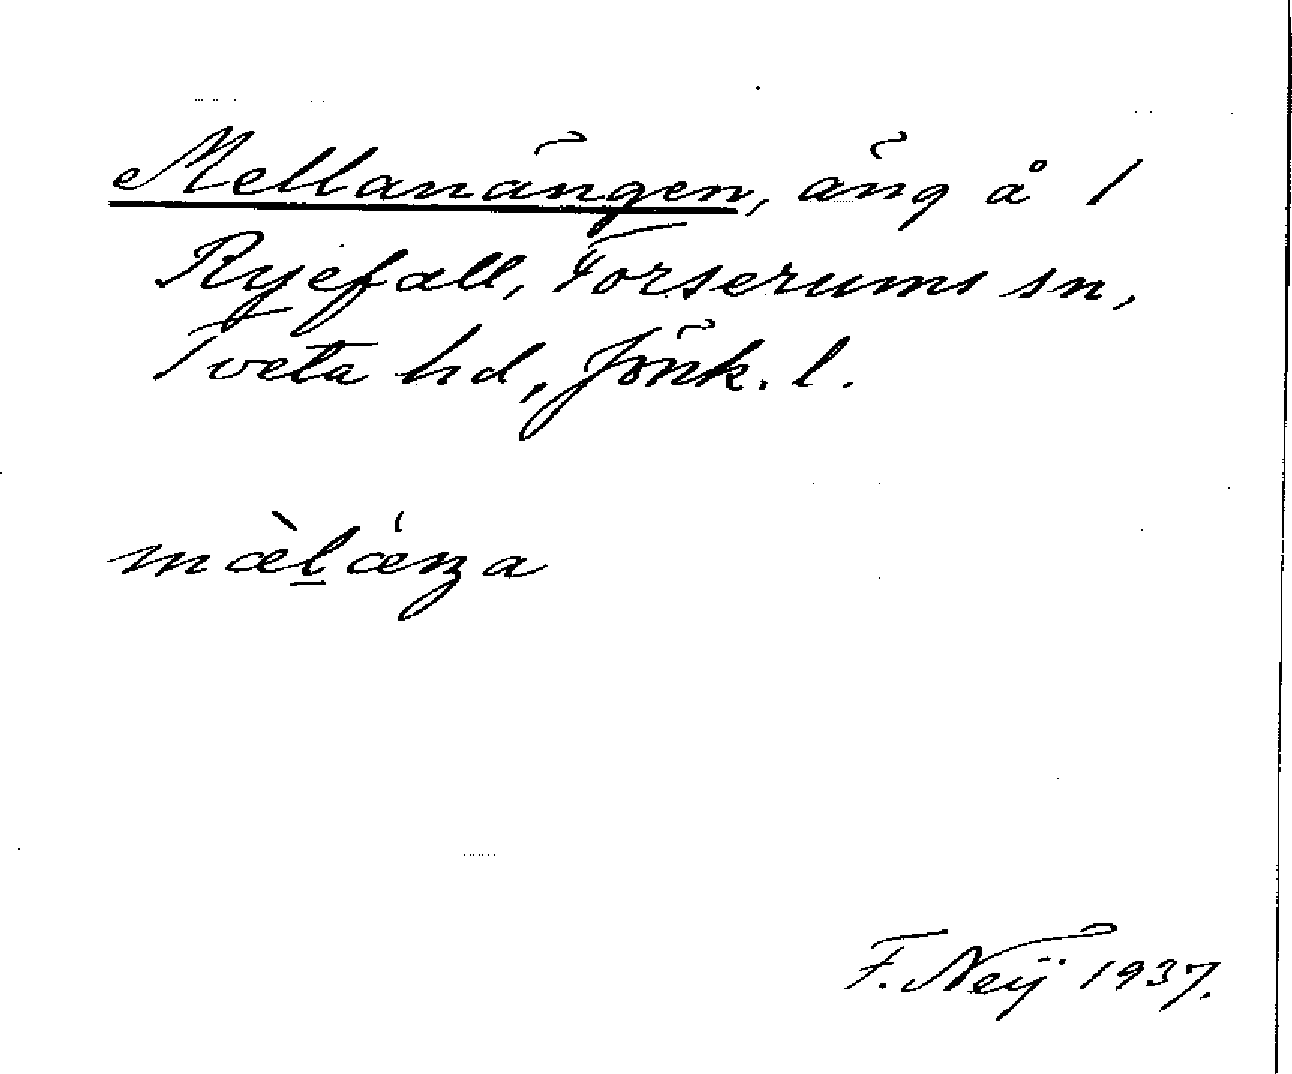 Mellanängen, äng å 1
Ryefall, Forserums sn,
Tveta hd, Jönk. l.
mæ̀l̠ǽŋa
F. Neij 1937.